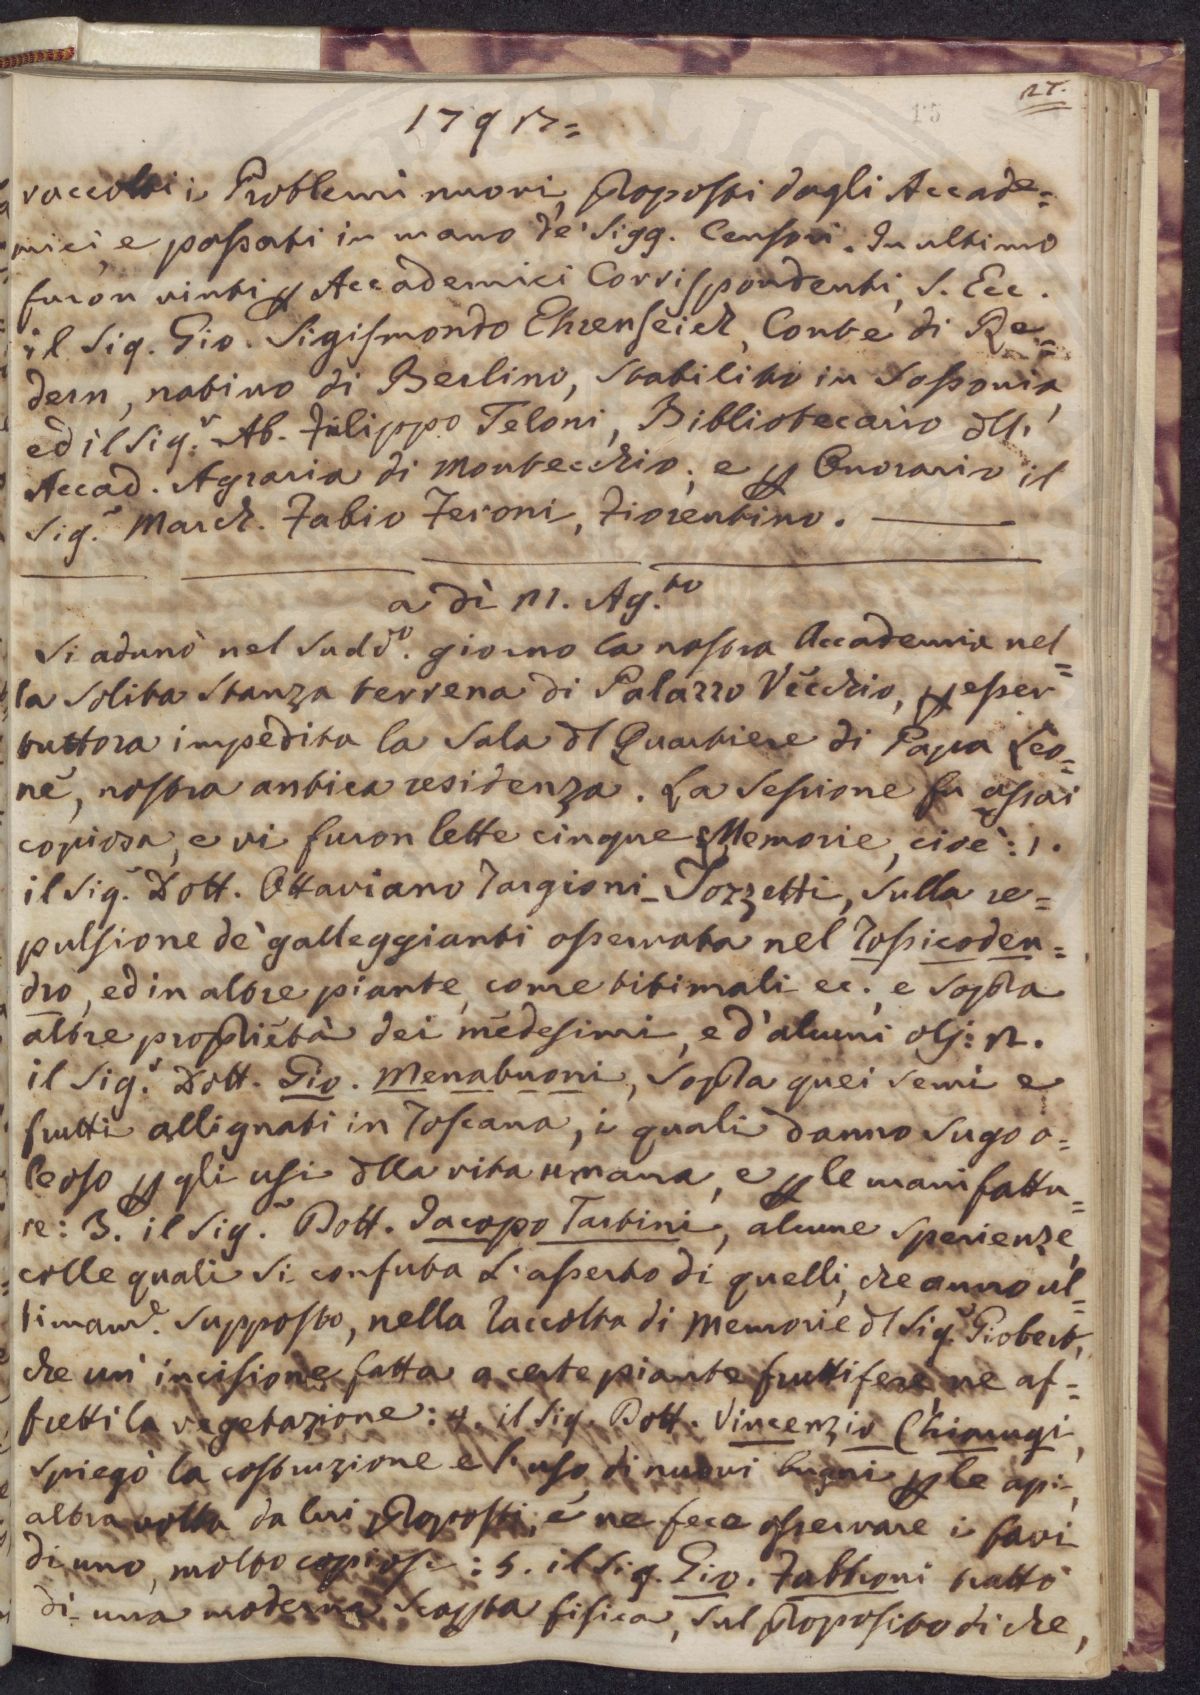 27.
15
1792=
raccolti i Problemi nuovi, proposti dagli Accade=
mici, e passati in mano de' Sigg. Censori. In ultimo
furon vinti per Accademici Corrispondenti, S. Ecc.
il Sig. Gio. Sigismondo Ehrenreich, Conte di Re=
dern, nativo di Berlino, stabilito in Sassonia,
ed il Sig.r Ab. Filippo Teloni, Bibliotecario dell'
Accad. Agraria di Montecchio; e per Onorario il
Sig.r March. Fabio Feroni, Fiorentino.
a dì 21. Ag.to
Si adunò nel sudd.o giorno la nostra Accademia nel=
la solita stanza terrena di Palazzo Vecchio, per esser
tuttora impedita la Sala del Quartiere di Papa Leo=
ne, nostra antica residenza. La Sessione fu assai
copiosa, e vi furon lette cinque Memorie, cioè: 1.
il Sig.r Dott. Ottaviano Targioni-Tozzetti, sulla re=
pulsione de' galleggianti osservata nel Tossicoden=
dro, ed in altre piante, come titimali ec., e sopra
altre proprietà dei medesimi, e d'alcuni olj: 2.
il Sig.r Dott. Gio. Menabuoni, sopra quei semi e
frutti allignati in Toscana, i quali danno sugo o=
leoso per gli usi della vita umana, e per le manifattu=
re: 3. il Sig.r Dott. Jacopo Tartini, alcune sperienze,
colle quali si confuta l'asserto di quelli, che anno ul=
timam.e supposto, nella Raccolta di Memorie del Sig.r Giobert,
che un' incisione fatta a certe piante fruttifere ne af=
fretti la vegetazione: 4. il Sig. Dott. Vincenzio Chiarugi,
spiegò la costruzione e l'uso di nuovi bugni per le api,
altra volta da lui proposti, e ne fece osservare i favi
di uno, molto copiosi: 5. il Sig. Gio. Fabbroni trattò
di una moderna scoperta fisica, sul proposito di che,